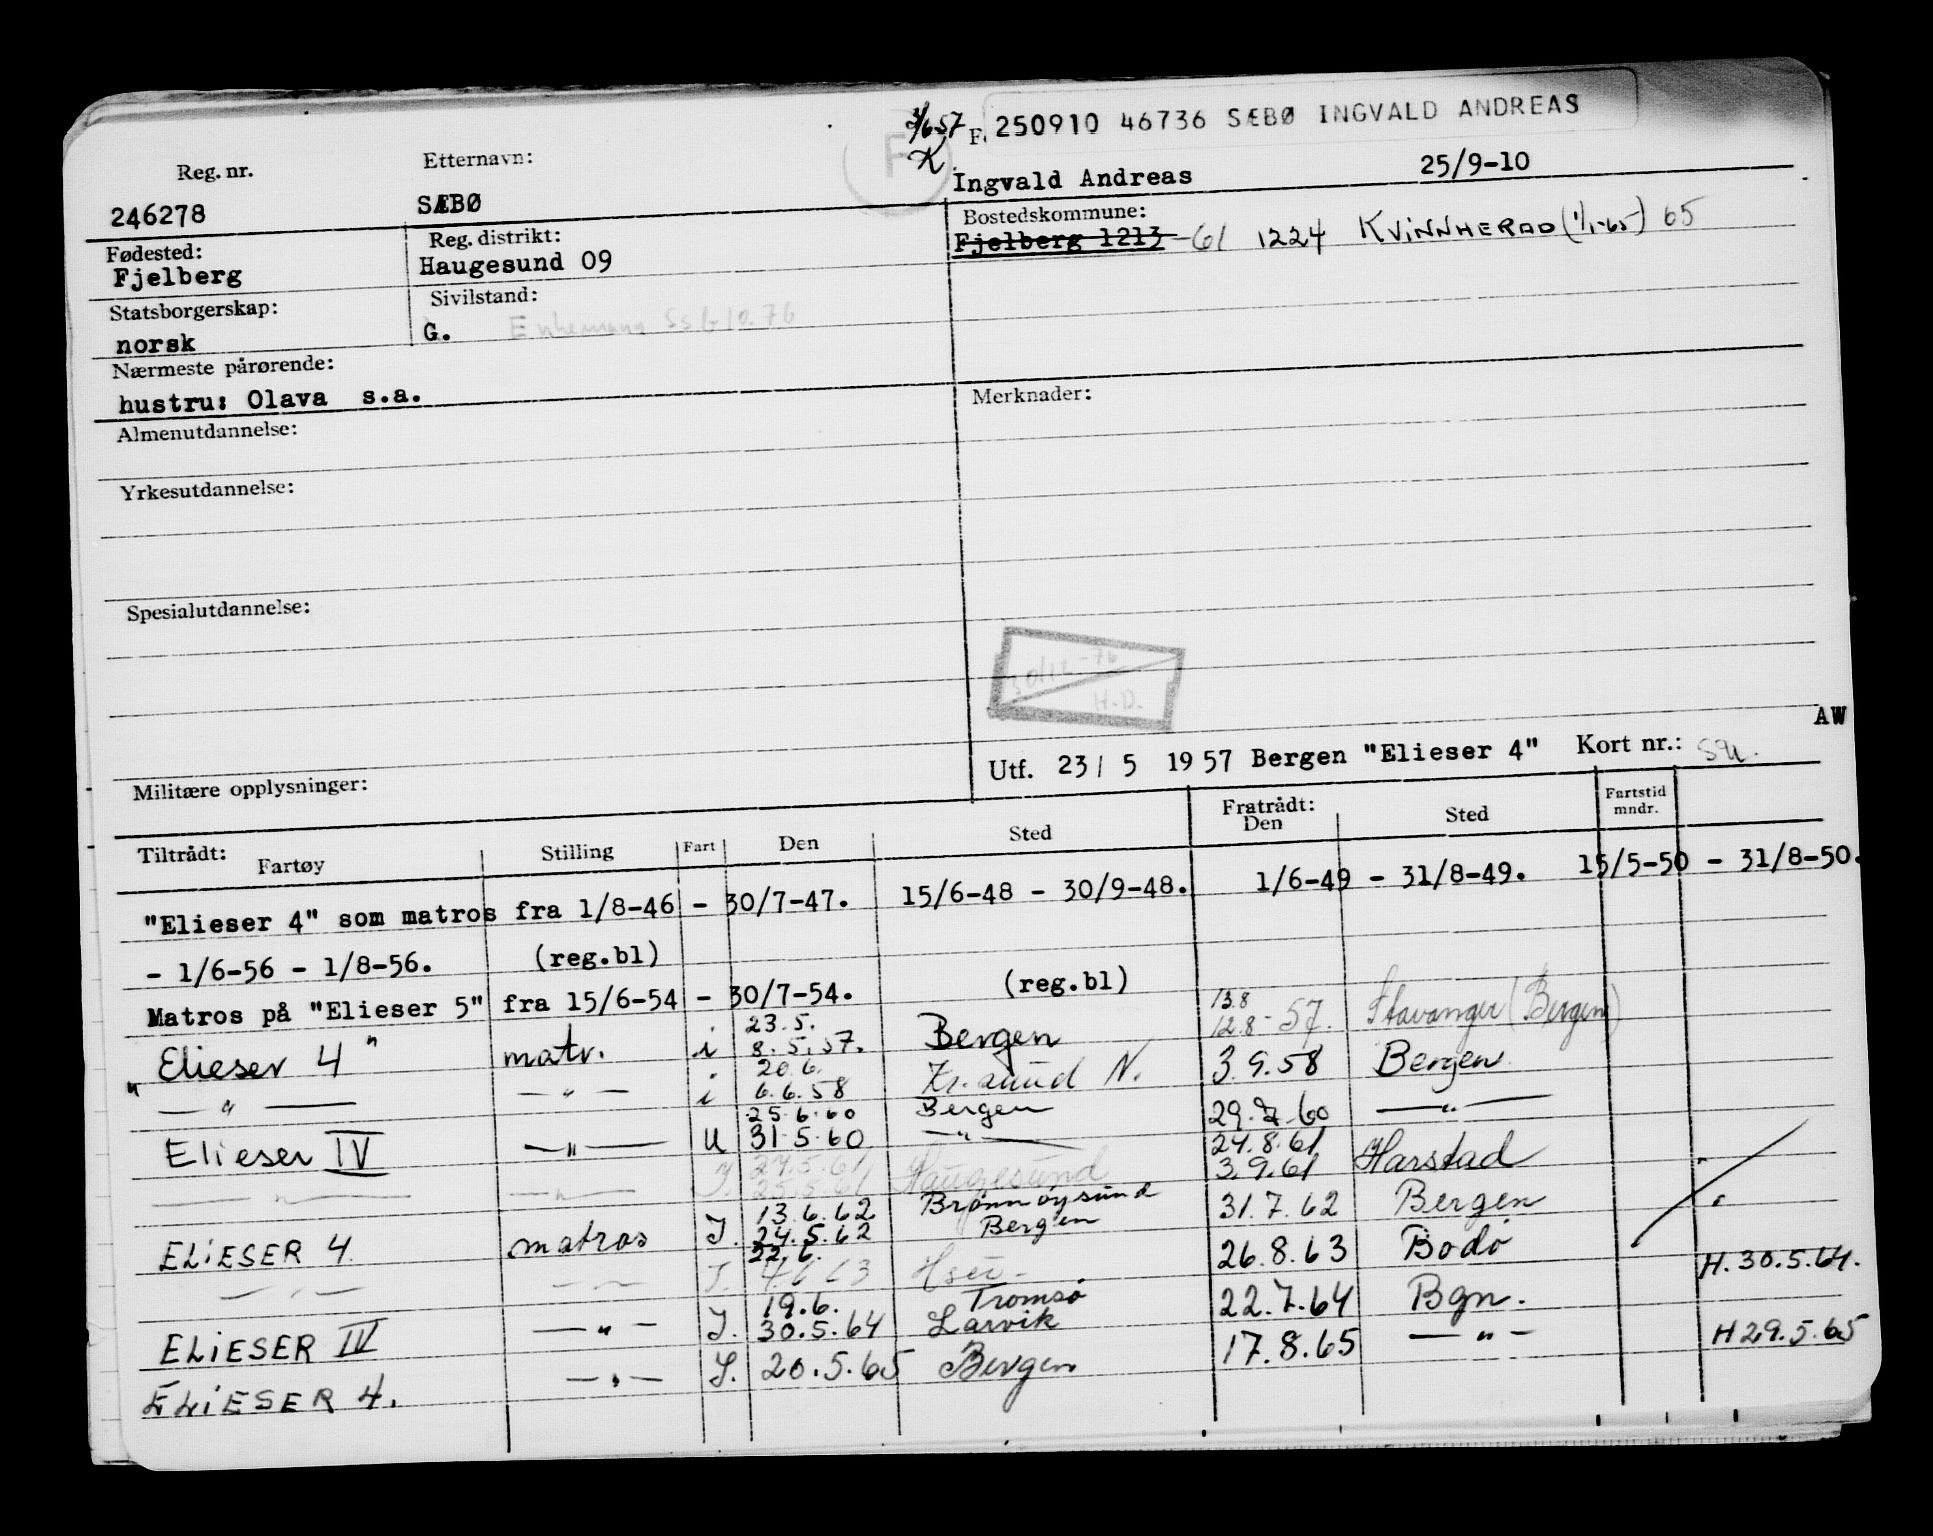 3/6-57 F. 250910 46736 SÆBØ INGVALD ANDREAS
F K
Reg. nr. Etternavn:
246278 SÆBØ Ingvald Andreas 25/9-10
Fødested: Reg. distrikt: Bostedskommune:
Fjelberg Haugesund 09 Fjelberg 1213 -61 1224 KVINNHERAD (1/1-65) 65
Statsborgerskap: Sivilstand:
norsk G. Enkemann
Nærmeste pårørende:
hustru: Olava s.a.
Merknader:
Almenutdannelse:
Yrkesutdannelse:
Spesialutdannelse:
30/12-76
H.D.
AW
Militære opplysninger: Utf. 23/ 5 1957 Bergen "Elieser 4" Kort nr.:
Tiltrådt: Fratrådt: Fartstid mndr.
Fartøy Stilling Fart Den Sted Den Sted
"Elieser 4" som matros fra 1/8-46 - 30/7-47. 15/6-48 - 30/9-48. 1/6-49 - 31/8-49. 15/5-50 - 31/8-50.
- 1/6-56 - 1/8-56. (reg.bl)
Matros på "Elieser 5" fra 15/6-54 - 30/7-54. (reg.bl)
23.5. 13.8
"Elieser 4" matr. i 8.5.57. Bergen 12.8-57. Stavanger (Bergen)
20.6.
— " — — " — i 6.6.58 Kr.sund N. 3.9.58 Bergen
25.6.60 Bergen
Elieser IV — " — U 31.5.60 — " — 29.7.60 — " —
27.5.61 24.8.61
— " — — " — I. 25.5.61 Haugesund 3.9.61 Harstad
13.6.62 Brønnøysund
ELIESER 4 matros I. 24.5.62 Bergen 31.7.62 Bergen
22.6.
— " — — " — I. 4.6.63 26.8.63 Bodø
19.6. Tromsø H. 30.5.64.
ELIESER IV — " — I. 30.5.64 Larvik 22.7.64 Bgn.
ELIESER 4. — " — I. 20.5.65 Bergen 17.8.65 — " — H 29.5.65